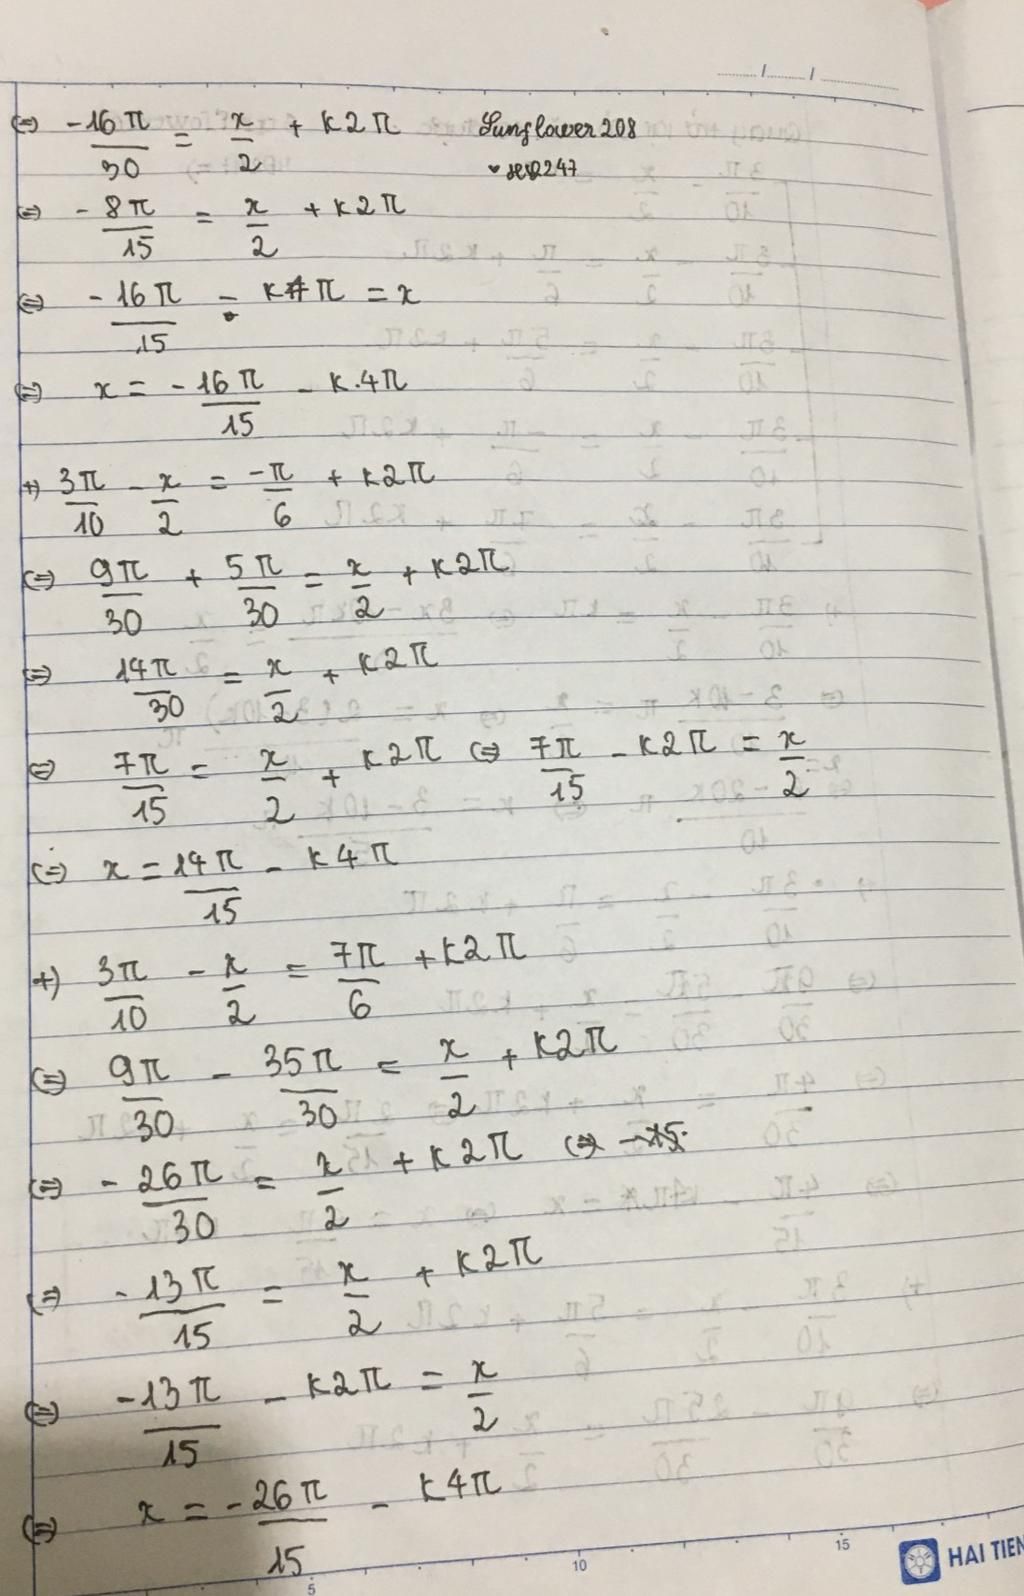 ...../...../..............
⇔ -16π/30 = x/2 + k2π Sunflower 208
⇔ - 8π/15 = x/2 + k2π
⇔ - 16π/15 - k4π = x
⇔ x = - 16π/15 - k.4π
+) 3π/10 - x/2 = -π/6 + k2π
⇔ 9π/30 + 5π/30 = x/2 + k2π
⇔ 14π/30 = x/2 + k2π
⇔ 7π/15 = x/2 + k2π ⇔ 7π/15 - k2π = x/2
⇔ x = 14π/15 - k4π
+) 3π/10 - x/2 = 7π/6 + k2π
⇔ 9π/30 - 35π/30 = x/2 + k2π
⇔ - 26π/30 = x/2 + k2π ⇔
⇔ - 13π/15 = x/2 + k2π
⇔ -13π/15 - k2π = x/2
⇔ x = - 26π/15 - k4π
5 10 15 HAI TIEN